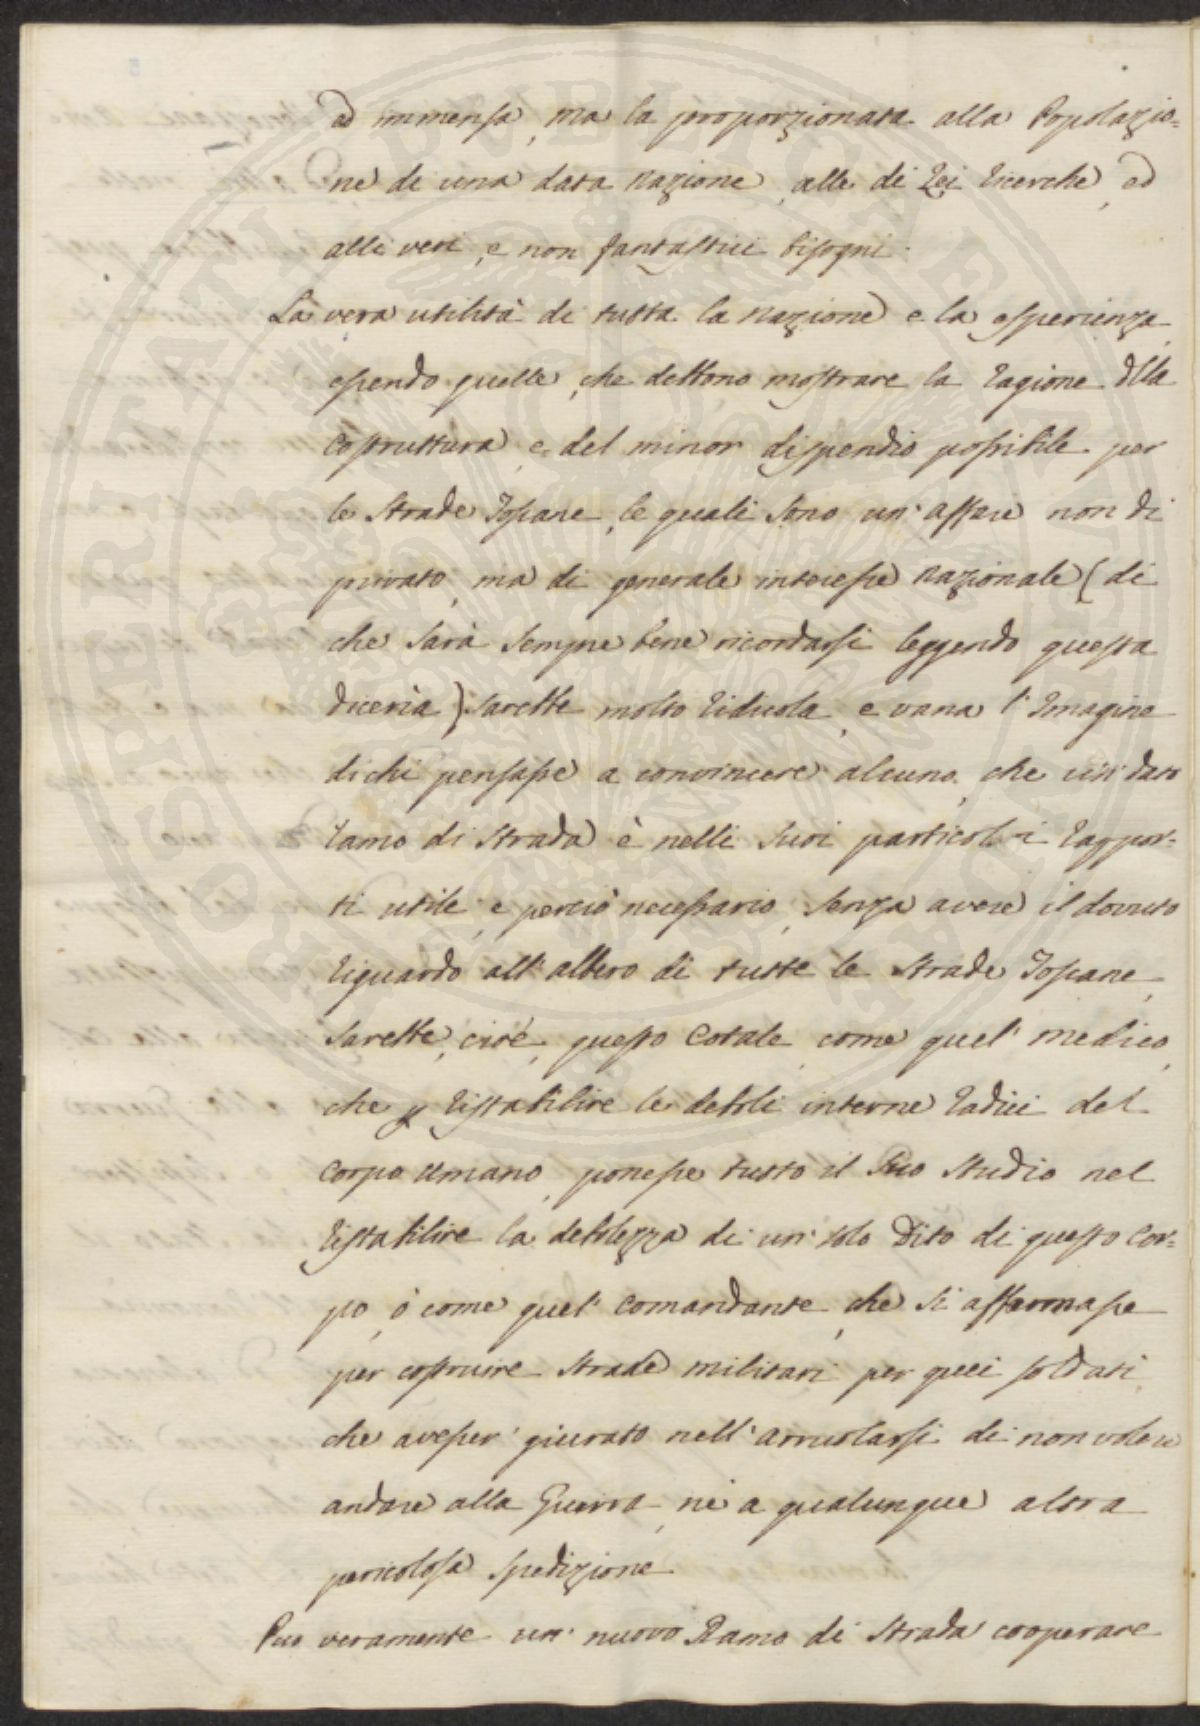 ed immensa, ma la proporzionata alla Popolazio=
ne di una data Nazione, alle di Lei ricerche, ed
alli veri, e non fantastici bisogni.
La vera utilità di tutta la Nazione e la esperienza,
essendo quelle, che debbono mostrare la ragione della
costruttura, e del minor dispendio possibile per
le Strade Tosane, le quali sono un' affare non di
privato, ma di generale interesse Nazionale (di
che sarà sempre bene ricordarsi leggendo questa
diceria) sarebbe molto ridicola, e vana l'Imagine
di chi pensasse a convincere alcuno, che un dato
ramo di Strada è nelli suoi particolari rappor=
ti utile, e perciò necessario, senza avere il dovuto
riguardo all' albero di tutte le Strade Tosane,
sarebbe, cioè, questo cotale come quel medico,
che p ristabilire le deboli interne radici del
corpo umano, ponesse tutto il suo studio nel
ristabilire la debolezza di un solo Dito di questo cor=
po, ò come quel comandante, che si affannasse
per costruire strade militari per quei soldati,
che avesser' giurato nell' arruolarsi di non volere
andare alla Guerra, nè a qualunque altra
pericolosa spedizione.
Può veramente un' nuovo Ramo di Strada cooperare
PROSPERITATI PUBLICAE AUGENDAE